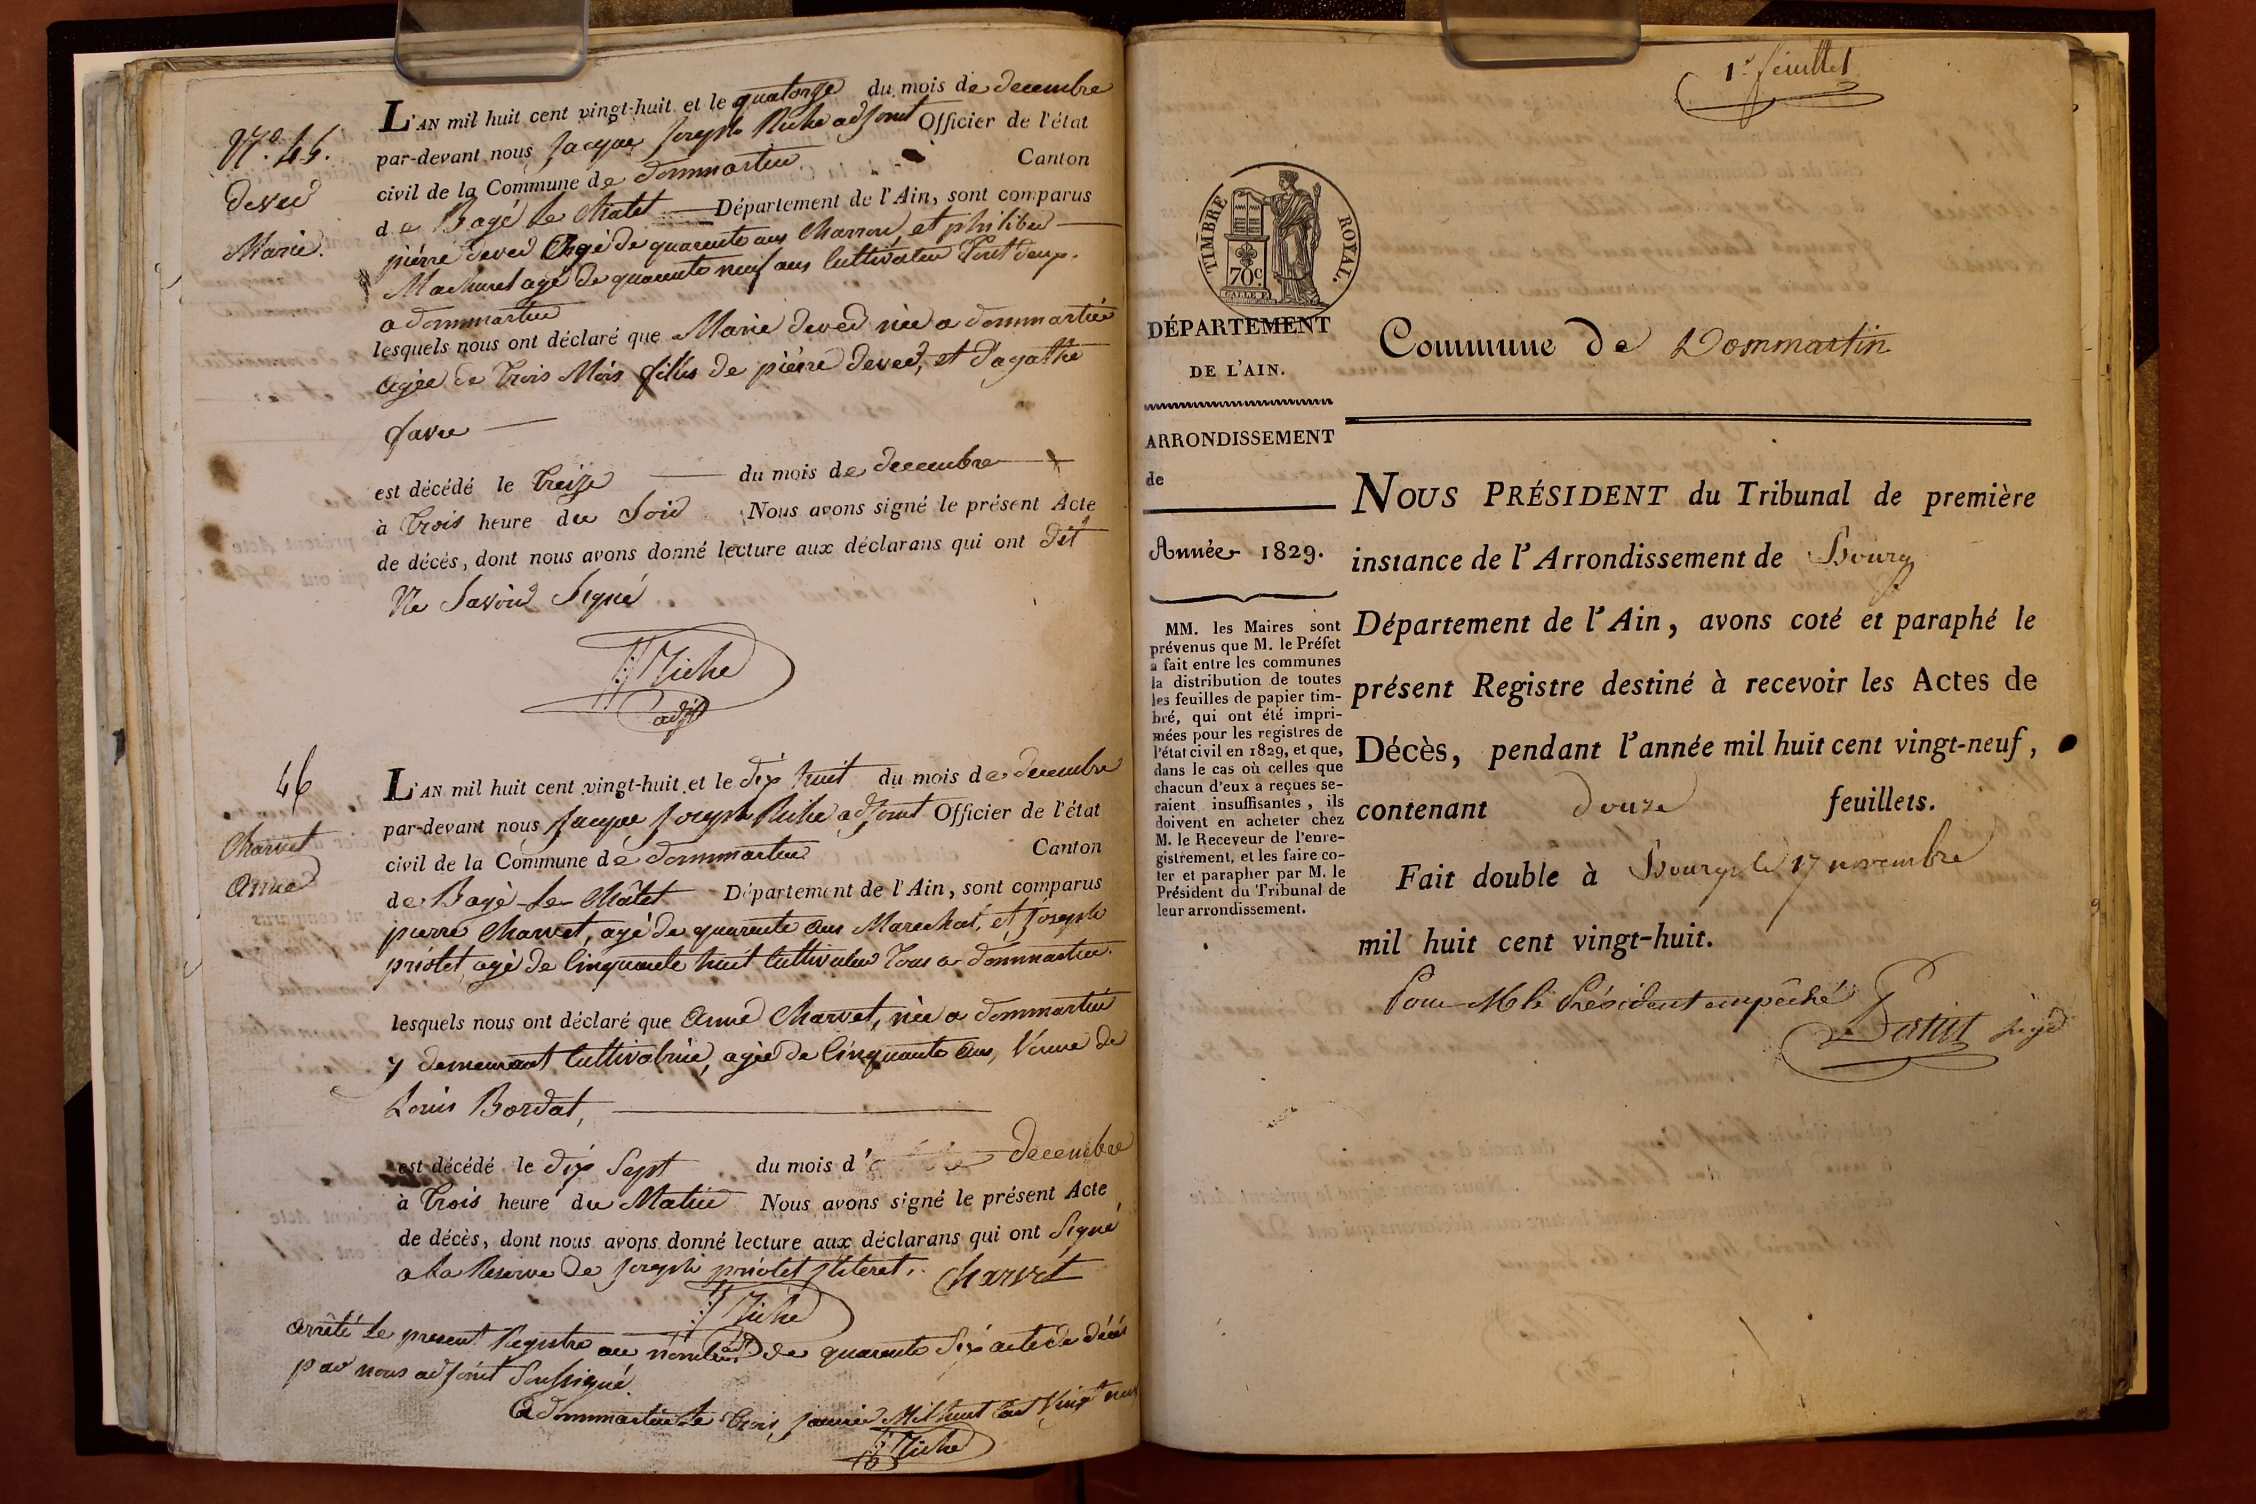 N.º 45.
deved
Marie.
L'AN mil huit cent vingt-huit et le quatorze du mois de decembre
par-devant nous Jacque Joseph Riche adjoint Officier de l'état
civil de la Commune de dommartin Canton
de Bagé le Chatel Département de l'Ain, sont comparus
piérre deved Agé de quarente ans Charron, et philiber
Machuret agé de quarente neuf ans Cultivateur Tout deux
a dommartin
lesquels nous ont déclaré que Marie deved née a dommartin
Agée de trois Mois fille de piérre deved, et d'agathe
favre
est décédé le treize du mois de decembre
à trois heure du Soir Nous avons signé le présent Acte
de décès, dont nous avons donné lecture aux déclarans qui ont dit
Ne Savoir Signé
Riche
adjt
46
Charvet
Anne
L'AN mil huit cent vingt-huit et le dix huit du mois de decembre
par-devant nous Jacque Joseph Riche adjoint Officier de l'état
civil de la Commune de dommartin Canton
de Bagé-le-Châtel Département de l'Ain, sont comparus
pierre Charvet, agé de quarente ans Marechal, et Joseph
priolet, agé de Cinquante huit Cultivateur Tous a dommartin.
lesquels nous ont déclaré que Anne Charvet, née a dommartin
y demeurant Cultivatrice, agée de Cinquante ans, Veuve de
Louis Bordat,
est décédé le dix Sept du mois d' decembre
à trois heure du Matin Nous avons signé le présent Acte
de décès, dont nous avons donné lecture aux déclarans qui ont Signé
a La Reserve de Joseph priolet illiteret. Charvet
Riche
adjt
Arrêté le present Registre au nombre de quarente Six acte de décés
par nous adjoint Soussigné.
A dommartin le trois janvier Mil huit Cent Vingt neuf
Riche
1.er feuillet
TIMBRE ROYAL.
70c
DÉPARTEMENT
DE L'AIN.
Commune de Dommartin
ARRONDISSEMENT
de
Année 1829.
MM. les Maires sont
prévenus que M. le Préfet
a fait entre les communes
la distribution de toutes
les feuilles de papier tim-
bré, qui ont été impri-
mées pour les registres de
l'état civil en 1829, et que,
dans le cas où celles que
chacun d'eux a reçues se-
raient insuffisantes, ils
doivent en acheter chez
M. le Receveur de l'enre-
gistrement, et les faire co-
ter et parapher par M. le
Président du Tribunal de
leur arrondissement.
NOUS PRÉSIDENT du Tribunal de première
instance de l'Arrondissement de Bourg
Département de l'Ain, avons coté et paraphé le
présent Registre destiné à recevoir les Actes de
Décès, pendant l'année mil huit cent vingt-neuf,
contenant douze feuillets.
Fait double à Bourg, le 17 novembre
mil huit cent vingt-huit.
Pour M. le Président empêché
juge